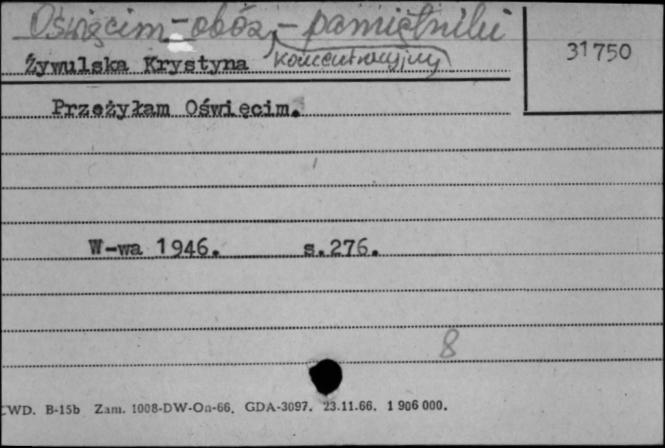 Oświęcim - obóz - pamiętniki
koncentracyjny
31750
Żywulska Krystyna
Przeżyłam Oświęcim.
W-wa 1946. s.276.
8
CWD. B-15b Zam. 1008-DW-On-66. GDA-3097. 23.11.66. 1 906 000.